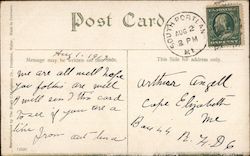 Post Card
SOUTH PORTLAND
AUG 2
2 PM
Message may be written on this side.
This side for address only.
Aug 1
we are all well hope
you folks are well
I will send this card
to see if you are a
live from aunt
Arthur Angell
Cape Elizabeth
Me
Box 44 R.F.D. 6